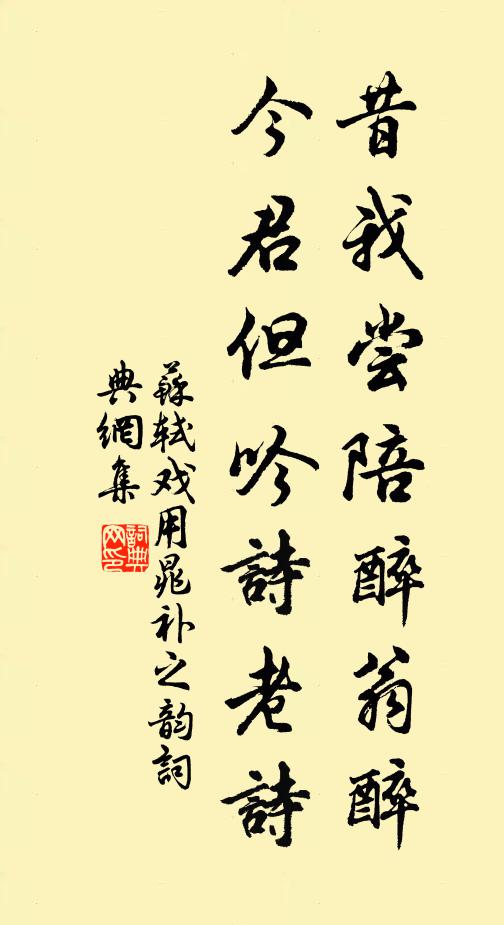 昔我尝陪醉翁醉
今君但吟詩老詩
蘇軾戏用晁补之韵詞
典網集
詞典
网印